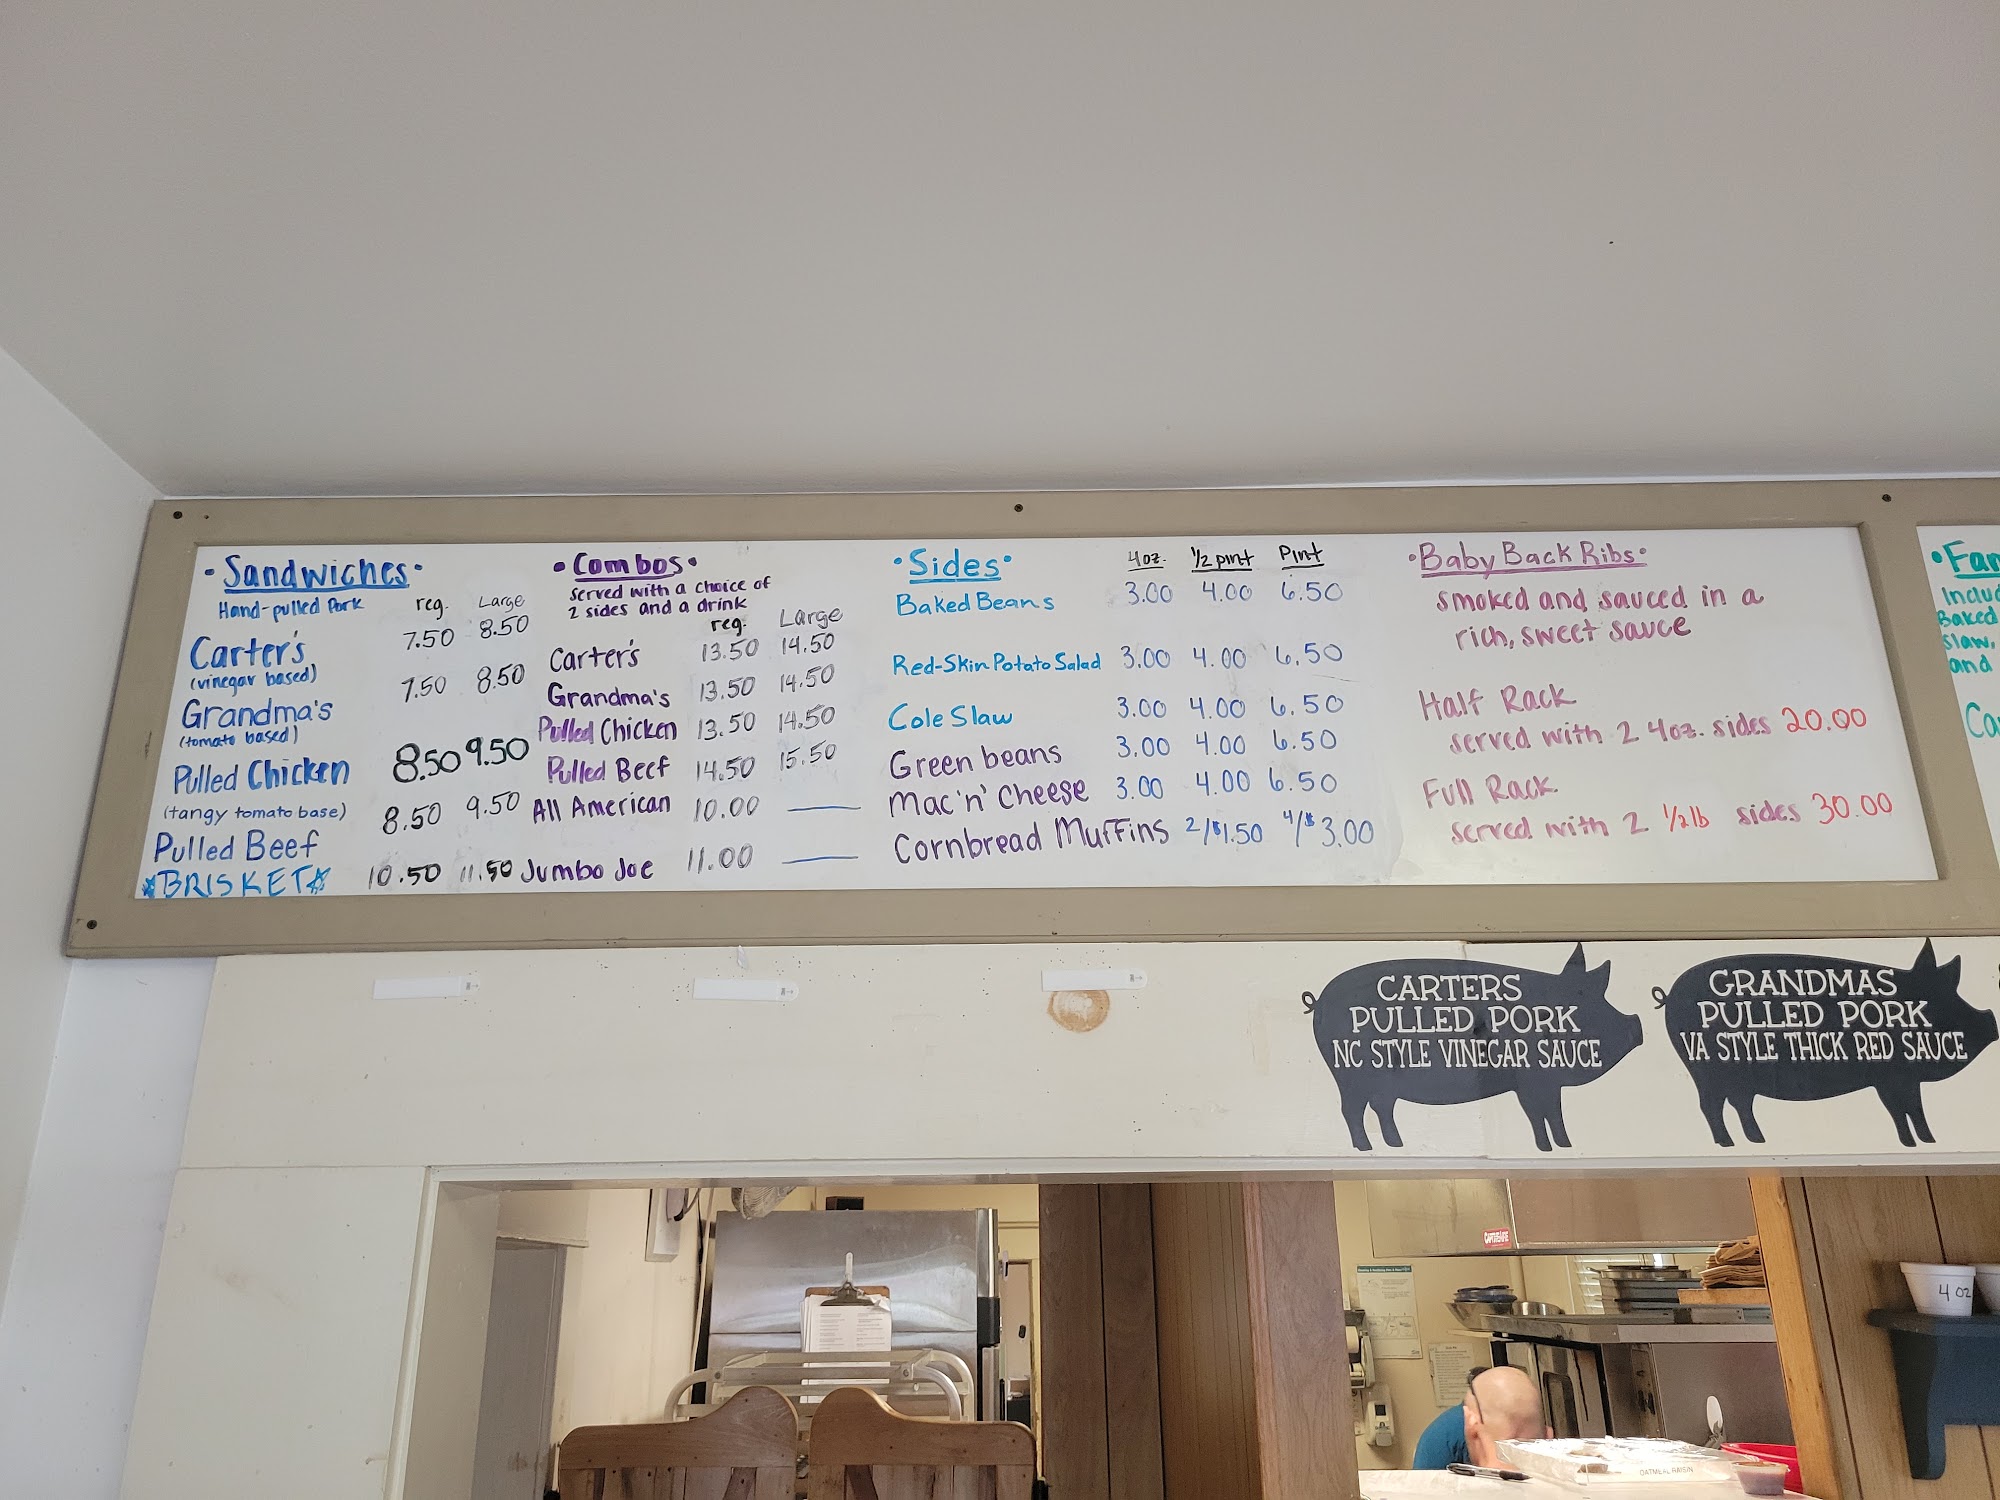 •Sandwiches•
Hand-pulled Pork reg. Large
Carter's 7.50 8.50
(vinegar based)
Grandma's 7.50 8.50
(tomato based)
Pulled Chicken 8.50 9.50
(tangy tomato base)
Pulled Beef 8.50 9.50
BRISKET 10.50 11.50
•Combos•
served with a choice of
2 sides and a drink
reg. Large
Carter's 13.50 14.50
Grandma's 13.50 14.50
Pulled Chicken 13.50 14.50
Pulled Beef 14.50 15.50
All American 10.00
Jumbo Joe 11.00
•Sides• 4oz. 1/2 pint Pint
Baked Beans 3.00 4.00 6.50
Red-Skin Potato Salad 3.00 4.00 6.50
Cole Slaw 3.00 4.00 6.50
Green beans 3.00 4.00 6.50
Mac 'n' Cheese 3.00 4.00 6.50
Cornbread Muffins 2/$1.50 4/$3.00
•Baby Back Ribs•
smoked and sauced in a
rich, sweet sauce
Half Rack
served with 2 4oz. sides 20.00
Full Rack
served with 2 1/2lb sides 30.00
•Fam
Includ
Baked
slaw,
and
CARTERS
PULLED PORK
NC STYLE VINEGAR SAUCE
GRANDMAS
PULLED PORK
VA STYLE THICK RED SAUCE
4 oz
OATMEAL RAISIN